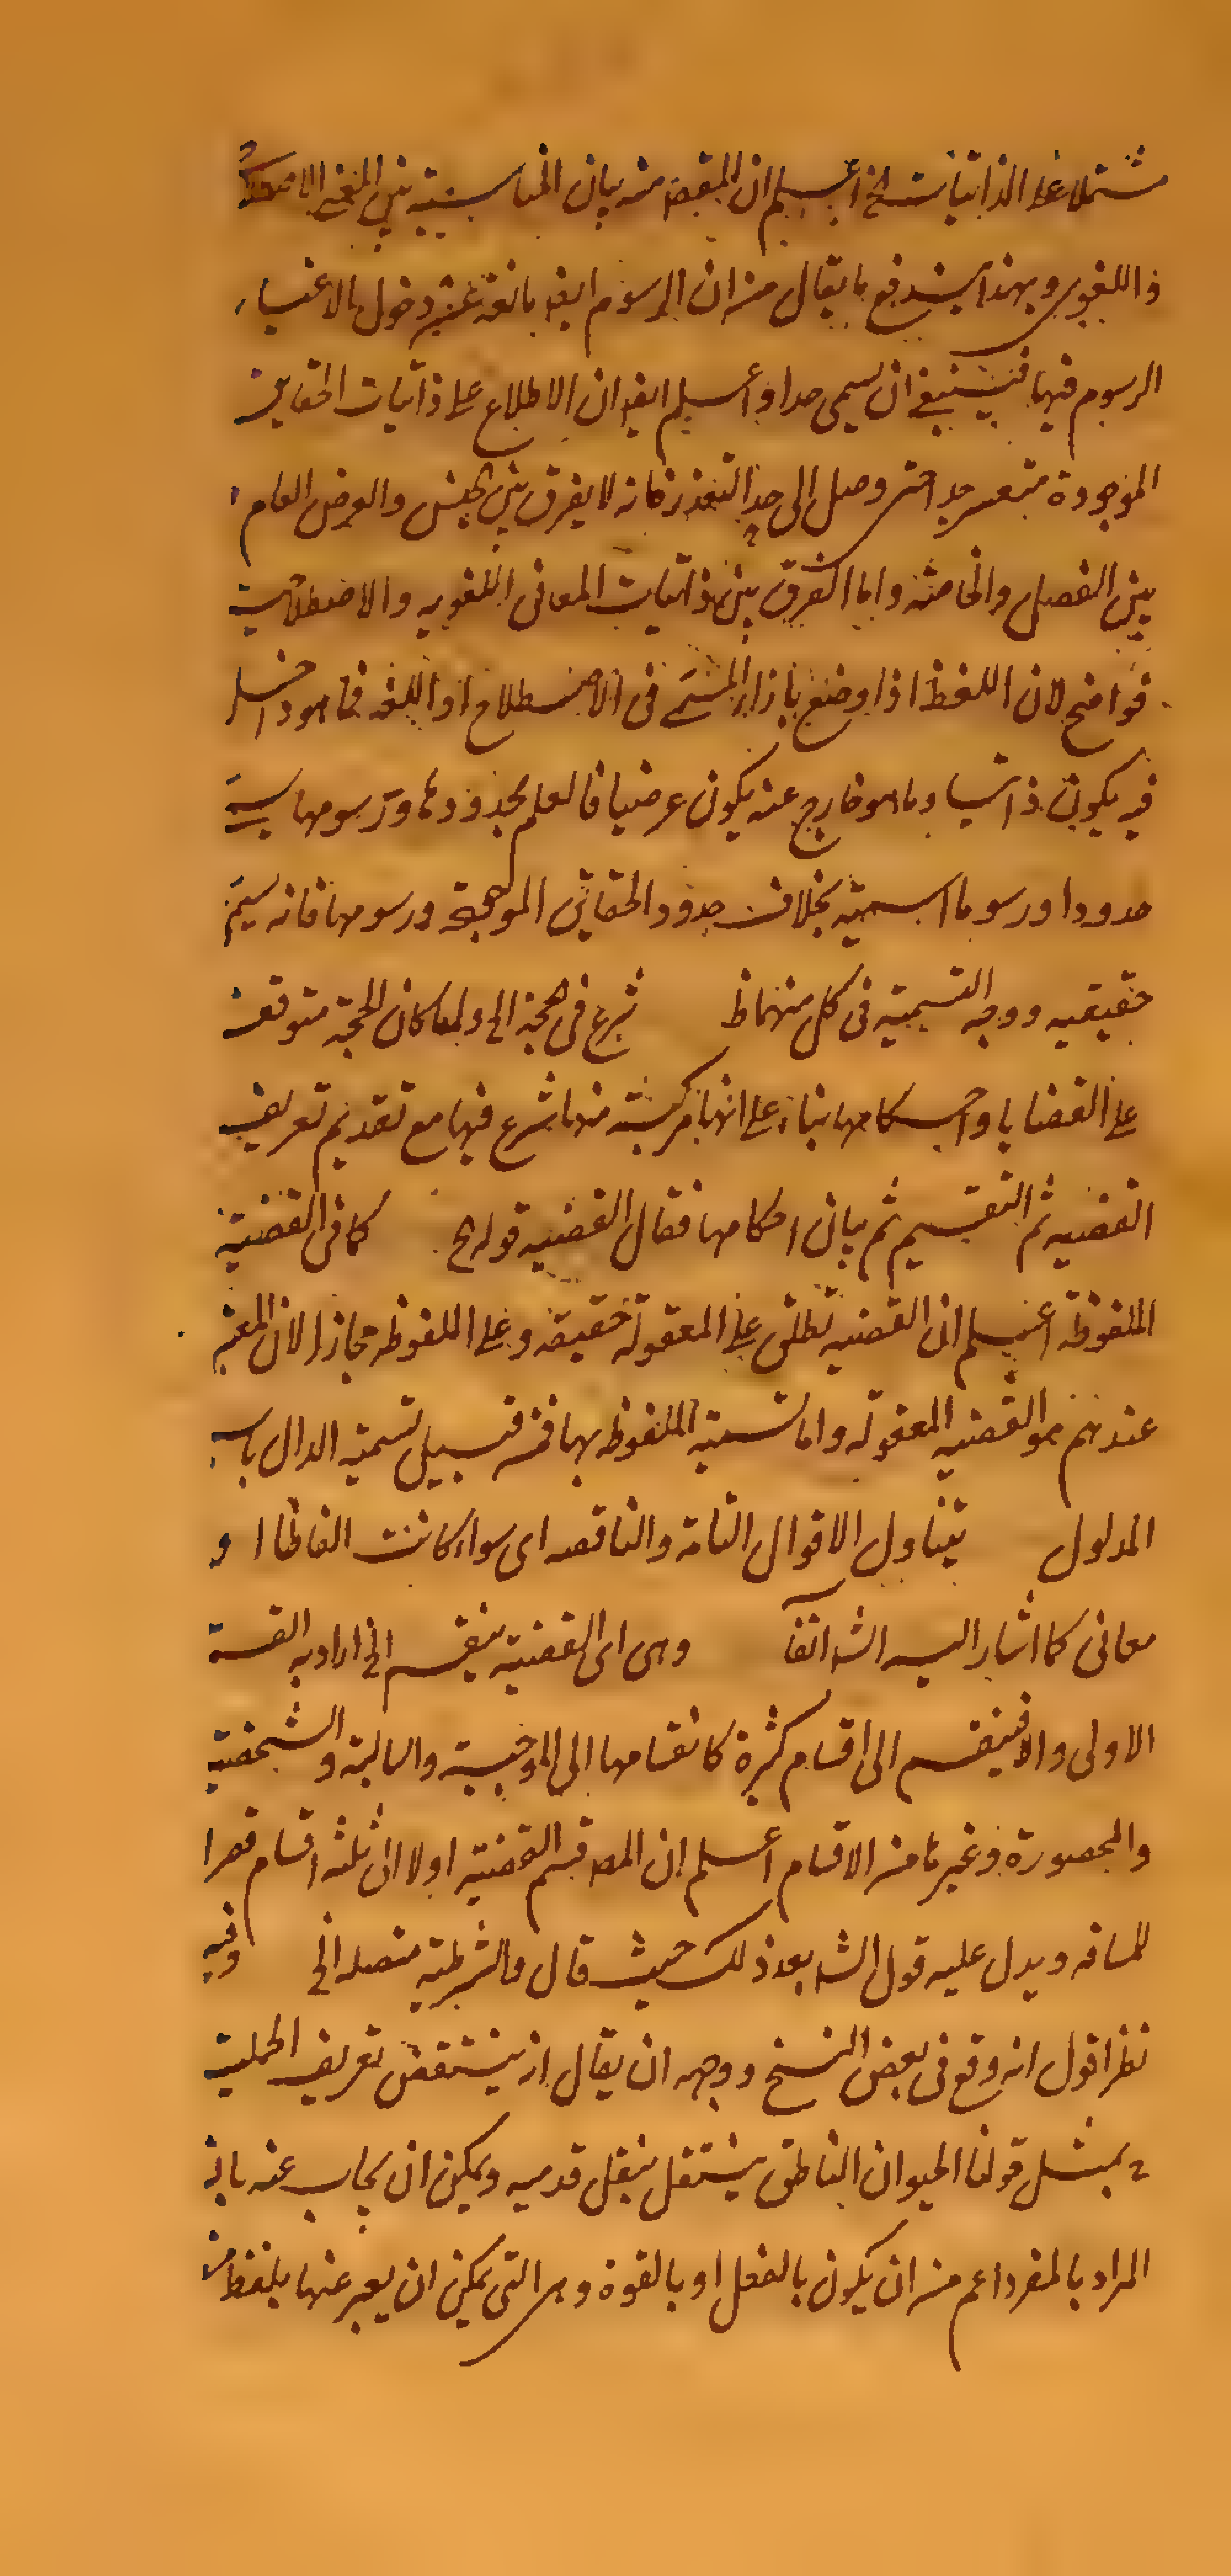 مشتملا على الذاتيات الخ اعلم ان المقصود منه بيان المناسبة بين المعنى الاصطلاحى
و اللغوى وبهذا يندفع ما يقال من ان الرسوم ايضا مانعة عن دخول الاغيار
الرسوم فيها فينبغى ان يسمى حدا واعلم ايضا ان الاطلاع على ذاتيات الحقايق
الموجودة متعسر جدا حتى وصل الى حد التعذر فانه لا يفرق بين الجنس والعرض العام و
بين الفصل والخاصة واما الفرق بين ذاتيات المعانى اللغويه والاصطلاحية
فواضح لان اللفظ اذا وضع بازاء المسمى فى الاصطلاح او اللغة فما هو داخل
فيه يكون ذاتيا وما هو خارج عنه يكون عرضيا فالعلم بحدودها ورسومها يسمى
حدودا ورسوما اسمية بخلاف حدود الحقائق الموجودة ورسومها فانه يسمى
حقيقيه ووجه التسمية فى كل منهما ظ شرع فى الحجة الى ولما كان الحجة متوقف
على القضايا واحكامها بناء على انها مركبة منها شرع فيها مع تقديم تعريف
القضيه ثم التقسيم ثم بيان احكامها فقال القضيه قول الخ كما فى القضية
الملفوظة اعلم ان القضيه تطلق على المعقولة حقيقة وعلى الملفوظه مجازا لان المعتبر
عندهم هو القضيه المعقوله واما تسمية الملفوظه بها فمن قبيل تسمية الدال باسم
المدلول يتناول الاقوال التامة والناقصه اى سواء كانت الفاظا ا و
معانى كما اشار اليه الشه آنفا وهى اى القضية ينقسم الخ اراد به القسمة
الاولى والا فينقسم الى اقسام كثيرة كانقسامها الى الموجبة والسالبة والشخصية
والمحصورة وغيرها من الاقسام اعلم ان المص قسم القضية اولا الى ثلثه اقسام قصرا
للمسافه ويدل عليه قول الشه بعد ذلك حيث قال والشرطية متصله الخ وفيه
نظر اقول انه وقع فى بعض النسخ ووجهه ان يقال انه ينتقض تعريف الحملية
بمثل قولنا الحيوان الناطق ينتقل بنقل قدميه ويمكن ان يجاب عنه بان
المراد بالمفرد اعم من ان يكون بالفعل او بالقوة وهى التى يمكن ان يعبر عنها بلفظ